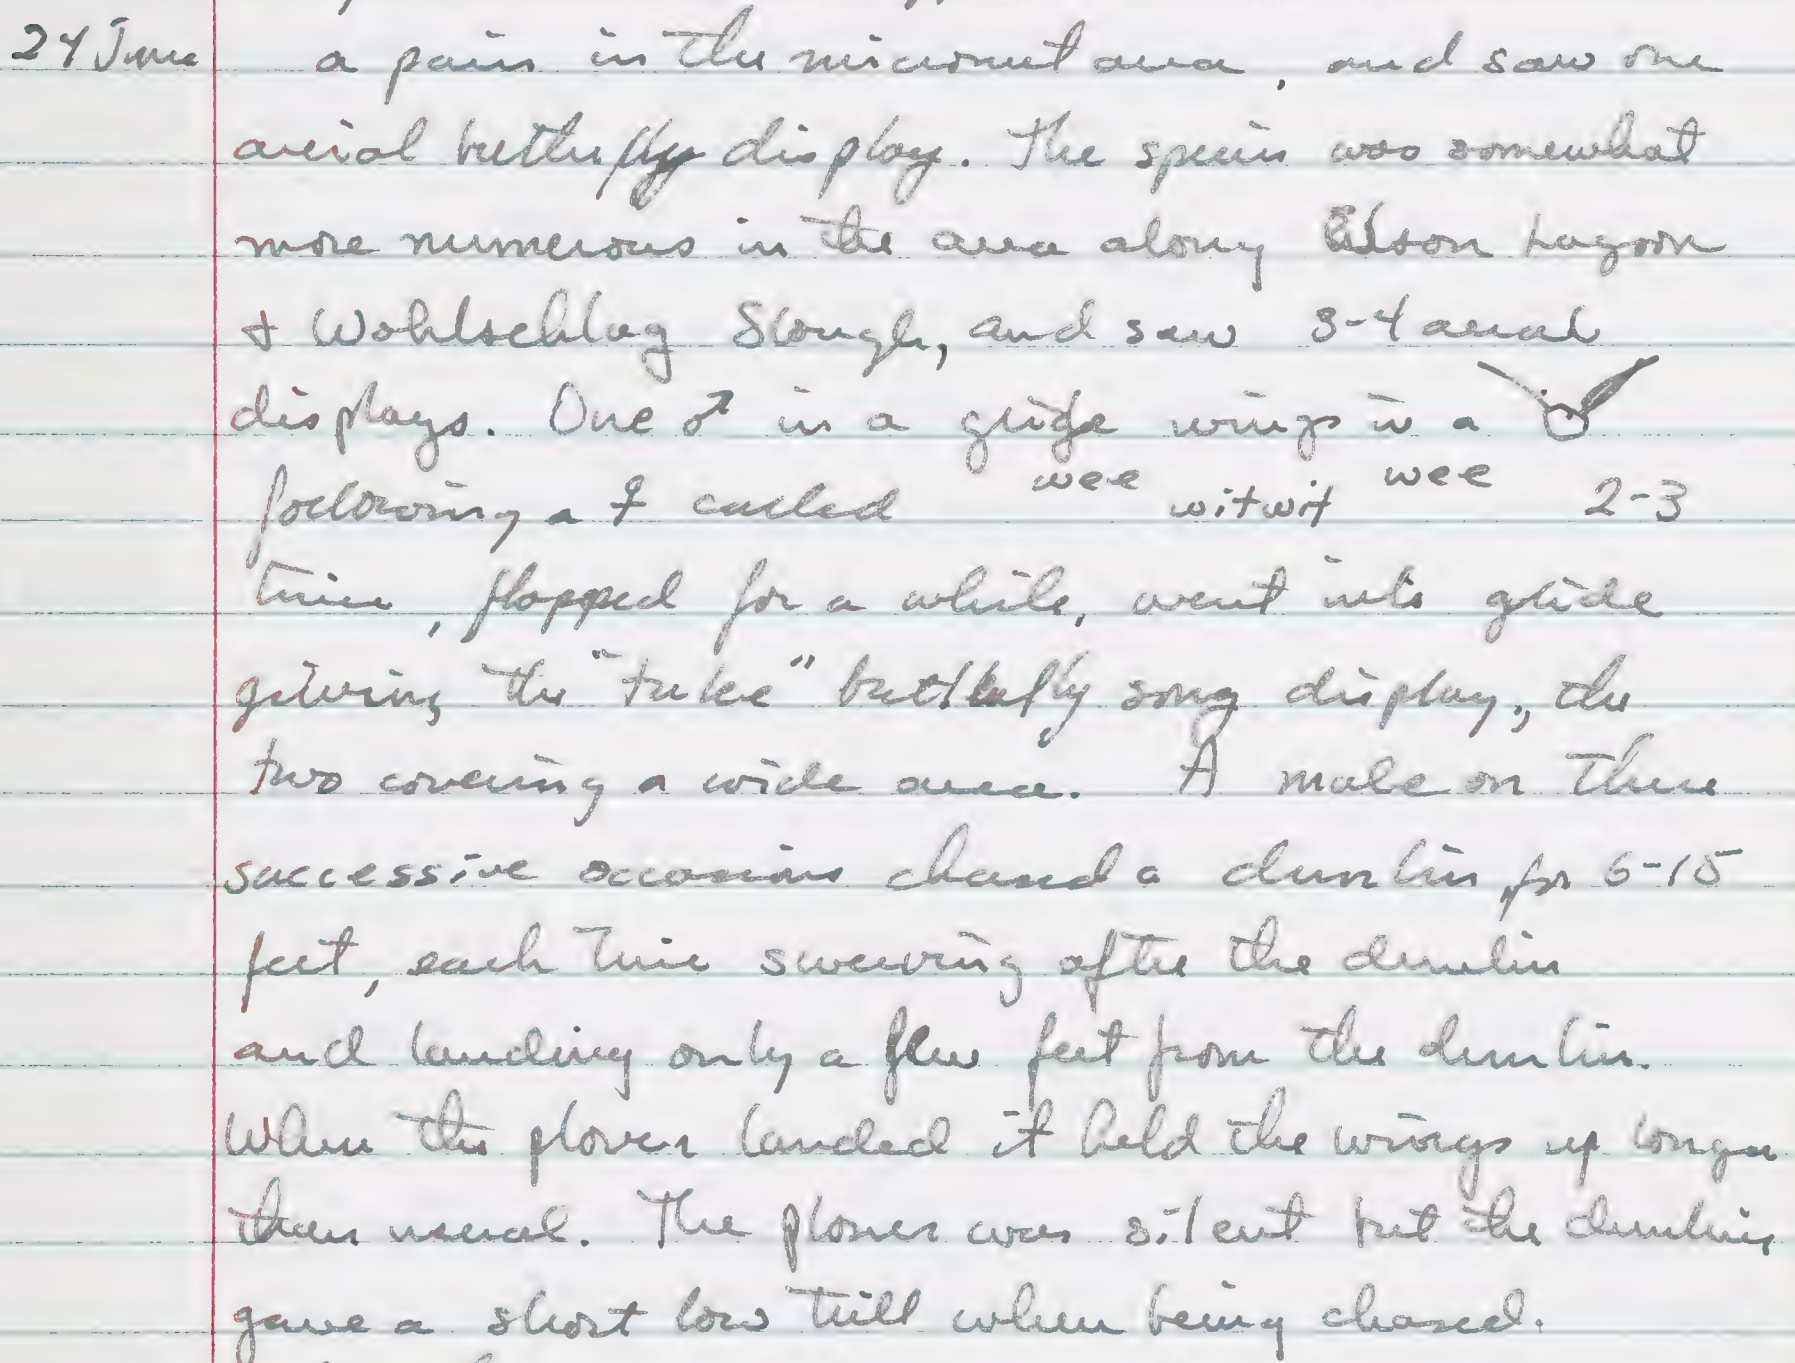 24 June a pair in the micromet area, and saw one
aerial butterfly display. The species was somewhat
more numerous in the area along Elson Lagoon
+ Wohlschlag Slough, and saw 3-4 aerial
displays. One ♂ in a glide wings in a
following a ♀ called wee witwit wee 2-3
times, flapped for a while, went into glide
giving the "tulee" butterfly song display, the
two covering a wide area. A male on three
successive occasions chased a dunlin for 6-15
feet, each time swerving after the dunlin
and landing only a few feet from the dunlin.
When the plover landed it held the wings up longer
than usual. The plover was silent but the dunlin
gave a short low trill when being chased.